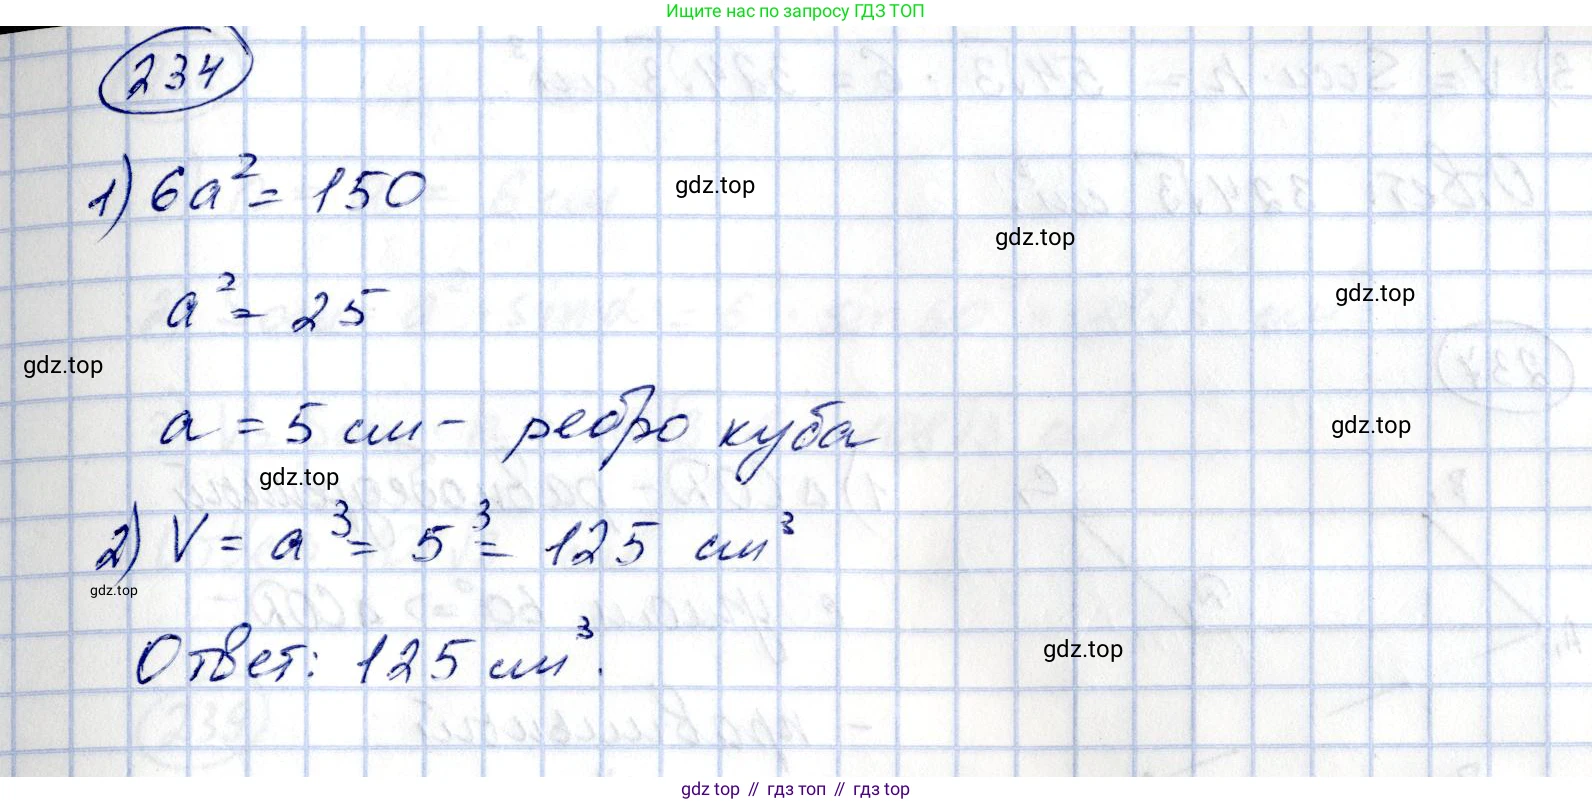 Ищите нас по запросу ГДЗ ТОП
234
1) 6a² = 150
gdz.top
gdz.top
a² = 25
gdz.top
gdz.top
a = 5 см - ребро куба
gdz.top
gdz.top
2) V = a³ = 5³ = 125 см³
gdz.top
Ответ: 125 см³.
gdz.top
gdz.top // гдз топ // гдз.top